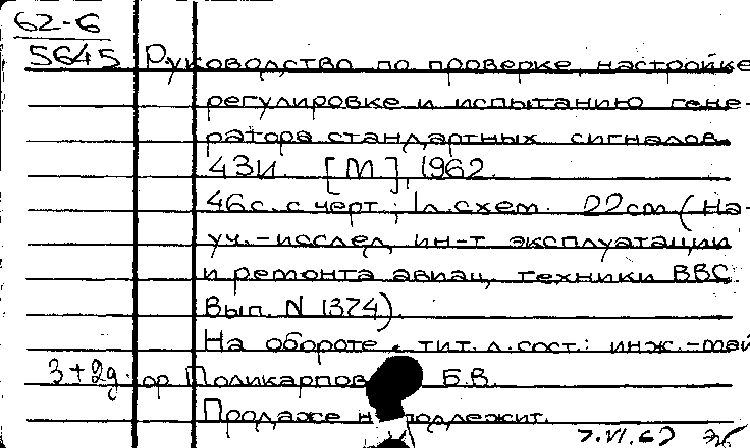 62-6
5645 Руководство по проверке, настройке
регулировке и испытанию гене-
ратора стандартных сигналов
43И. [М], 1962.
46с. с черт.; 1л.схем. 22см (На-
уч.-исслед. ин-т эксплуатации
и ремонта авиац. техники ВВС.
Вып. N 1374).
На обороте тит.л.сост.: инж.-май
3+2д. ор Поликарпов Б.В.
Продаже не подлежит.
7.VI.62